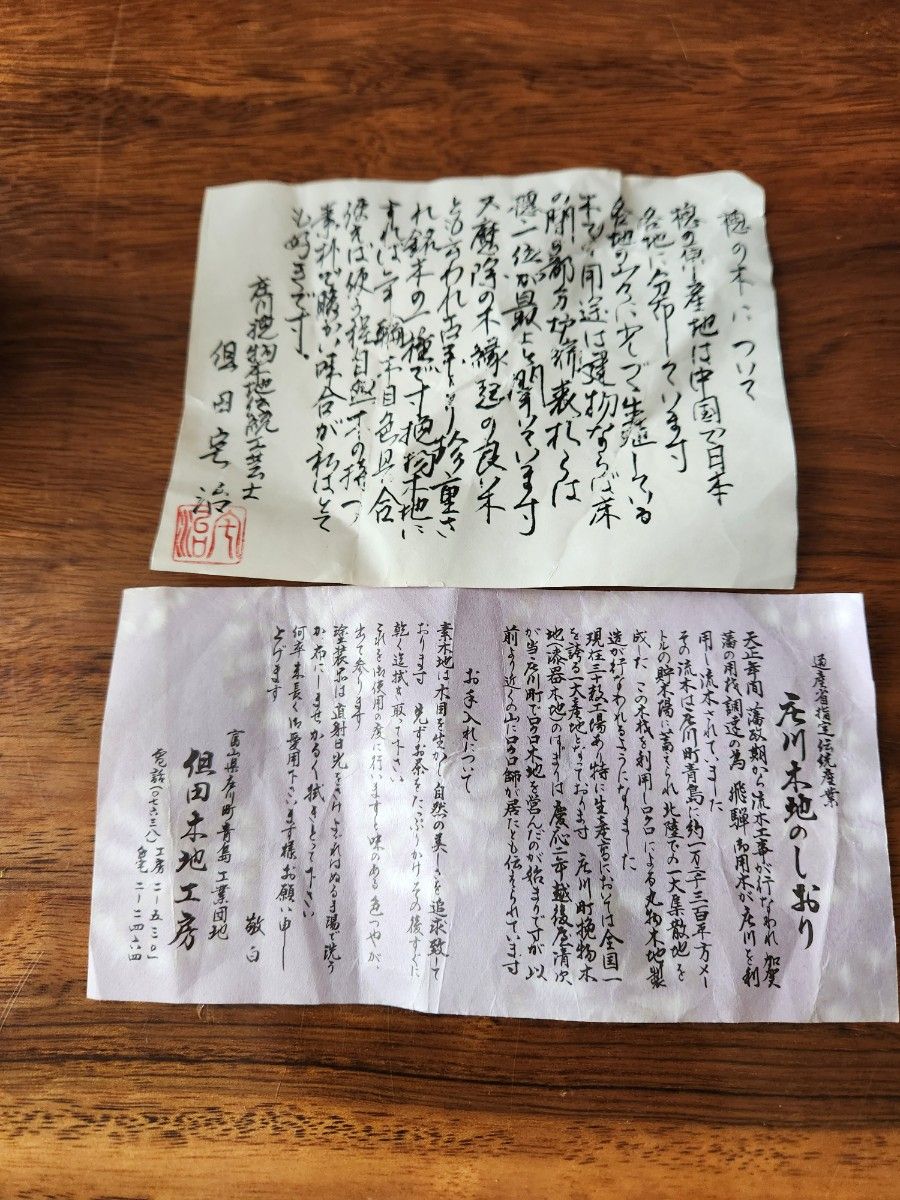 槐の木について
槐の原産地は中国で日本
各地に分布しています
各地の山々に少しづゝ生殖している
木で用途は建物ならば床
の間の部分 中国の諺表れらは
槐一位が最上と聞いています
又魔除の木縁起の良い木
とも云われ古来より珍重さ
れ銘木の一種です挽物木地に
すれば 木目色具合
使えば使う程自然木の持つ
素朴で暖かい味合が私はとて
も好きです。
庄川挽物木地伝統工芸士
但田宅治
通産省指定伝統産業
庄川木地のしおり
天正年間(藩政期)から流木工事が行なわれ 加賀
藩の用材調達の為 飛騨御用木が庄川を利
用し流木されていました
その流木は庄川町青島に約一万千三百平方メー
トルの貯木場に蓄えられ北陸での一大集散地を
成した この木材を利用しロクロによる丸物木地製
造が行なわれるようになりました
現在三十数工場あり特に生産高においては全国一
を誇る一大産地となっております 庄川町挽物木
地(漆器木地)のはじまりは慶応二年越後屋清次
が当庄川町でロクロ木地を営んだのが始まりですが 以
前より近くの山にロクロ師が居たとも伝えられています
お手入れについて
素木地は木目を生かし自然の美しさを追求致して
おります 先ずお茶をたっぷりかけその後すぐに
乾く迄拭き取って下さい
これを御使用の度に行いますと味のある色つやが、
出て参ります
塗装品は直射日光をさけ よごれはぬるま湯で洗う
か布にしませかるく拭きとって下さい
何卒末長く御愛用下さいます様お願い申し
上げます
敬白
富山県庄川町青島 工業団地
但田木地工房
電話(〇七六三八) 工房 二-五一三〇
自宅 二-二四六四